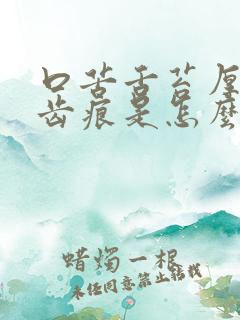 口苦舌苔厚
齿痕是怎麽
蜡烛一根
未经同意禁止转载